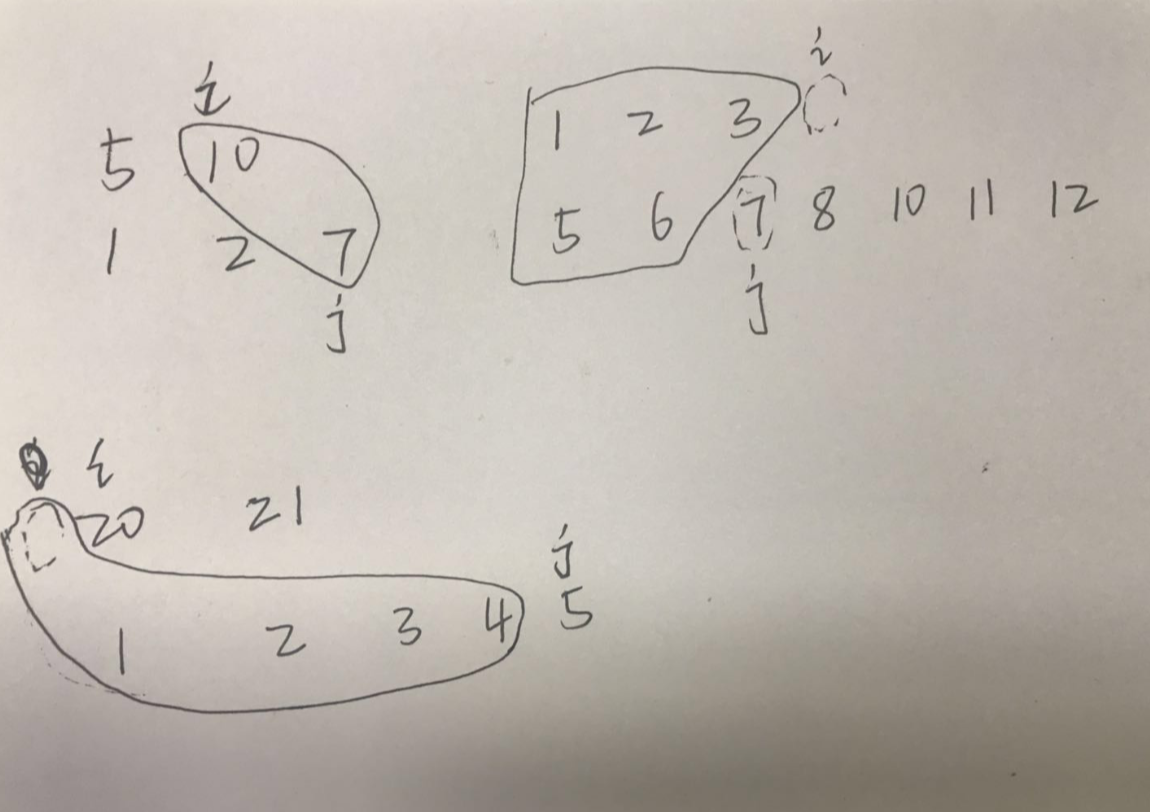 i
5 10
1 2 7
j
i
1 2 3
5 6 7 8 10 11 12
j
i
20 21
j
1 2 3 4 5